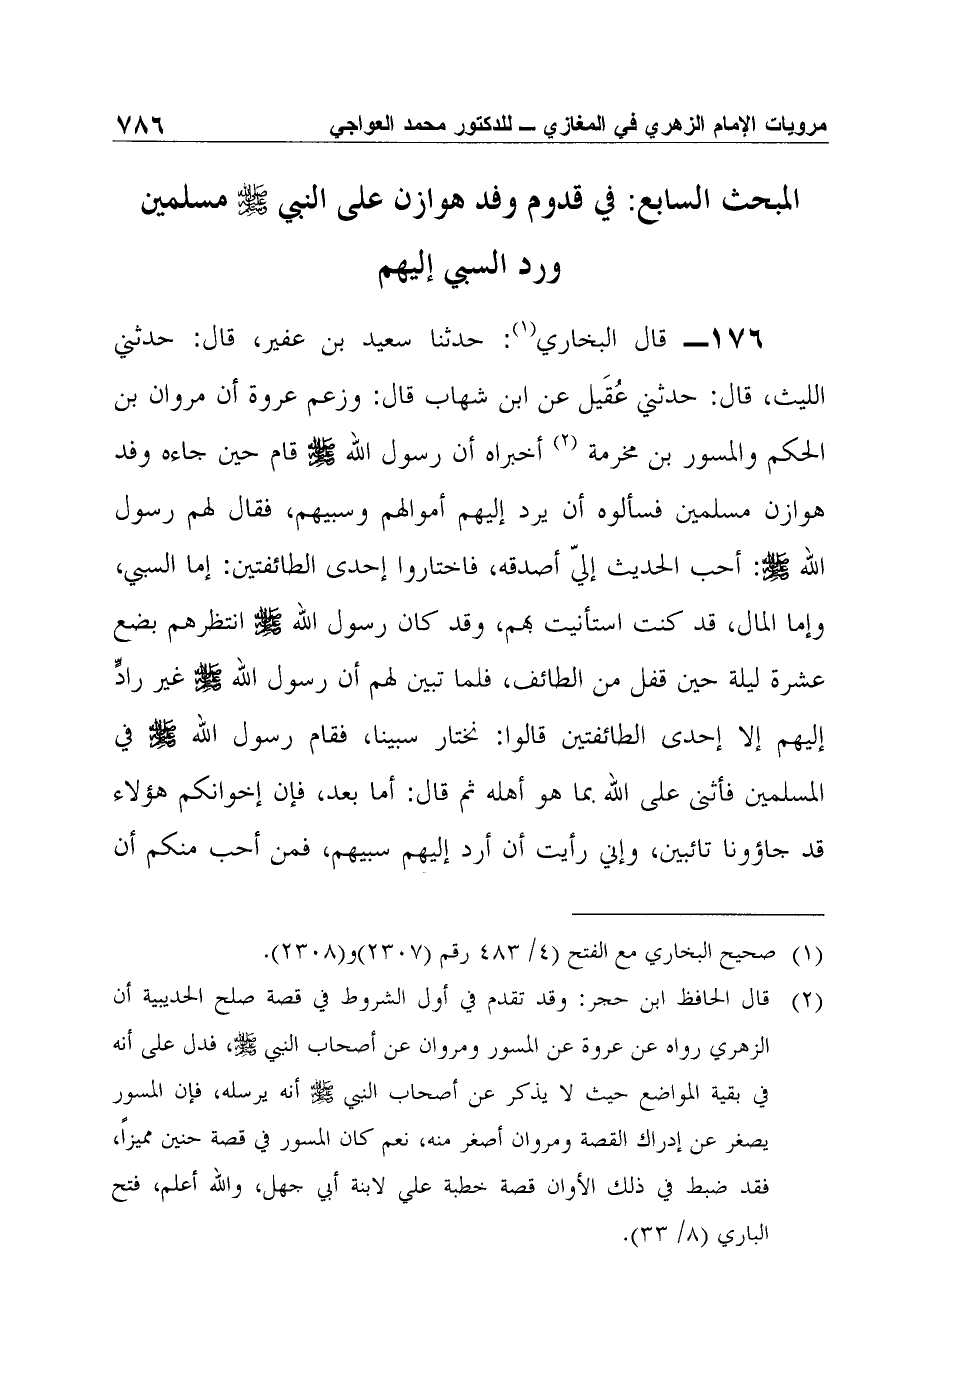 مرويات الإمام الزهري في المغازي ــ للدكتور محمد العواجي ٧٨٦
المبحث السابع: في قدوم وفد هوازن على النبي ﷺ مسلمين
ورد السبي إليهم
١٧٦ــ قال البخاري(١): حدثنا سعيد بن عفير، قال: حدثني
الليث، قال: حدثني عُقَيل عن ابن شهاب قال: وزعم عروة أن مروان بن
الحكم والمسور بن مخرمة (٢) أخبراه أن رسول الله ﷺ قام حين جاءه وفد
هوازن مسلمين فسألوه أن يرد إليهم أموالهم وسبيهم، فقال لهم رسول
الله ﷺ: أحب الحديث إليّ أصدقه، فاختاروا إحدى الطائفتين: إما السبي،
وإما المال، قد كنت استأنيت بهم، وقد كان رسول الله ﷺ انتظرهم بضع
عشرة ليلة حين قفل من الطائف، فلما تبين لهم أن رسول الله ﷺ غير رادٍّ
إليهم إلا إحدى الطائفتين قالوا: نختار سبينا، فقام رسول الله ﷺ في
المسلمين فأثنى على الله بما هو أهله ثم قال: أما بعد، فإن إخوانكم هؤلاء
قد جاؤونا تائبين، وإني رأيت أن أرد إليهم سبيهم، فمن أحب منكم أن
(١) صحيح البخاري مع الفتح (٤/ ٤٨٣ رقم (٢٣٠٧)و(٢٣٠٨).
(٢) قال الحافظ ابن حجر: وقد تقدم في أول الشروط في قصة صلح الحديبية أن
الزهري رواه عن عروة عن المسور ومروان عن أصحاب النبي ﷺ، فدل على أنه
في بقية المواضع حيث لا يذكر عن أصحاب النبي ﷺ أنه يرسله، فإن المسور
يصغر عن إدراك القصة ومروان أصغر منه، نعم كان المسور في قصة حنين مميزاً،
فقد ضبط في ذلك الأوان قصة خطبة علي لابنة أبي جهل، والله أعلم، فتح
الباري (٨/ ٣٣).